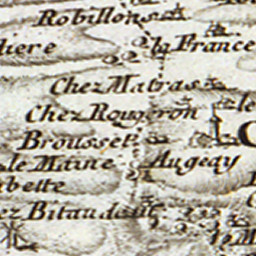 Robillons
diere la France
Chez Matras
Chez Rougeron le
Brousset
le Maine Augeay
bette
ez Bitaudeau
le M